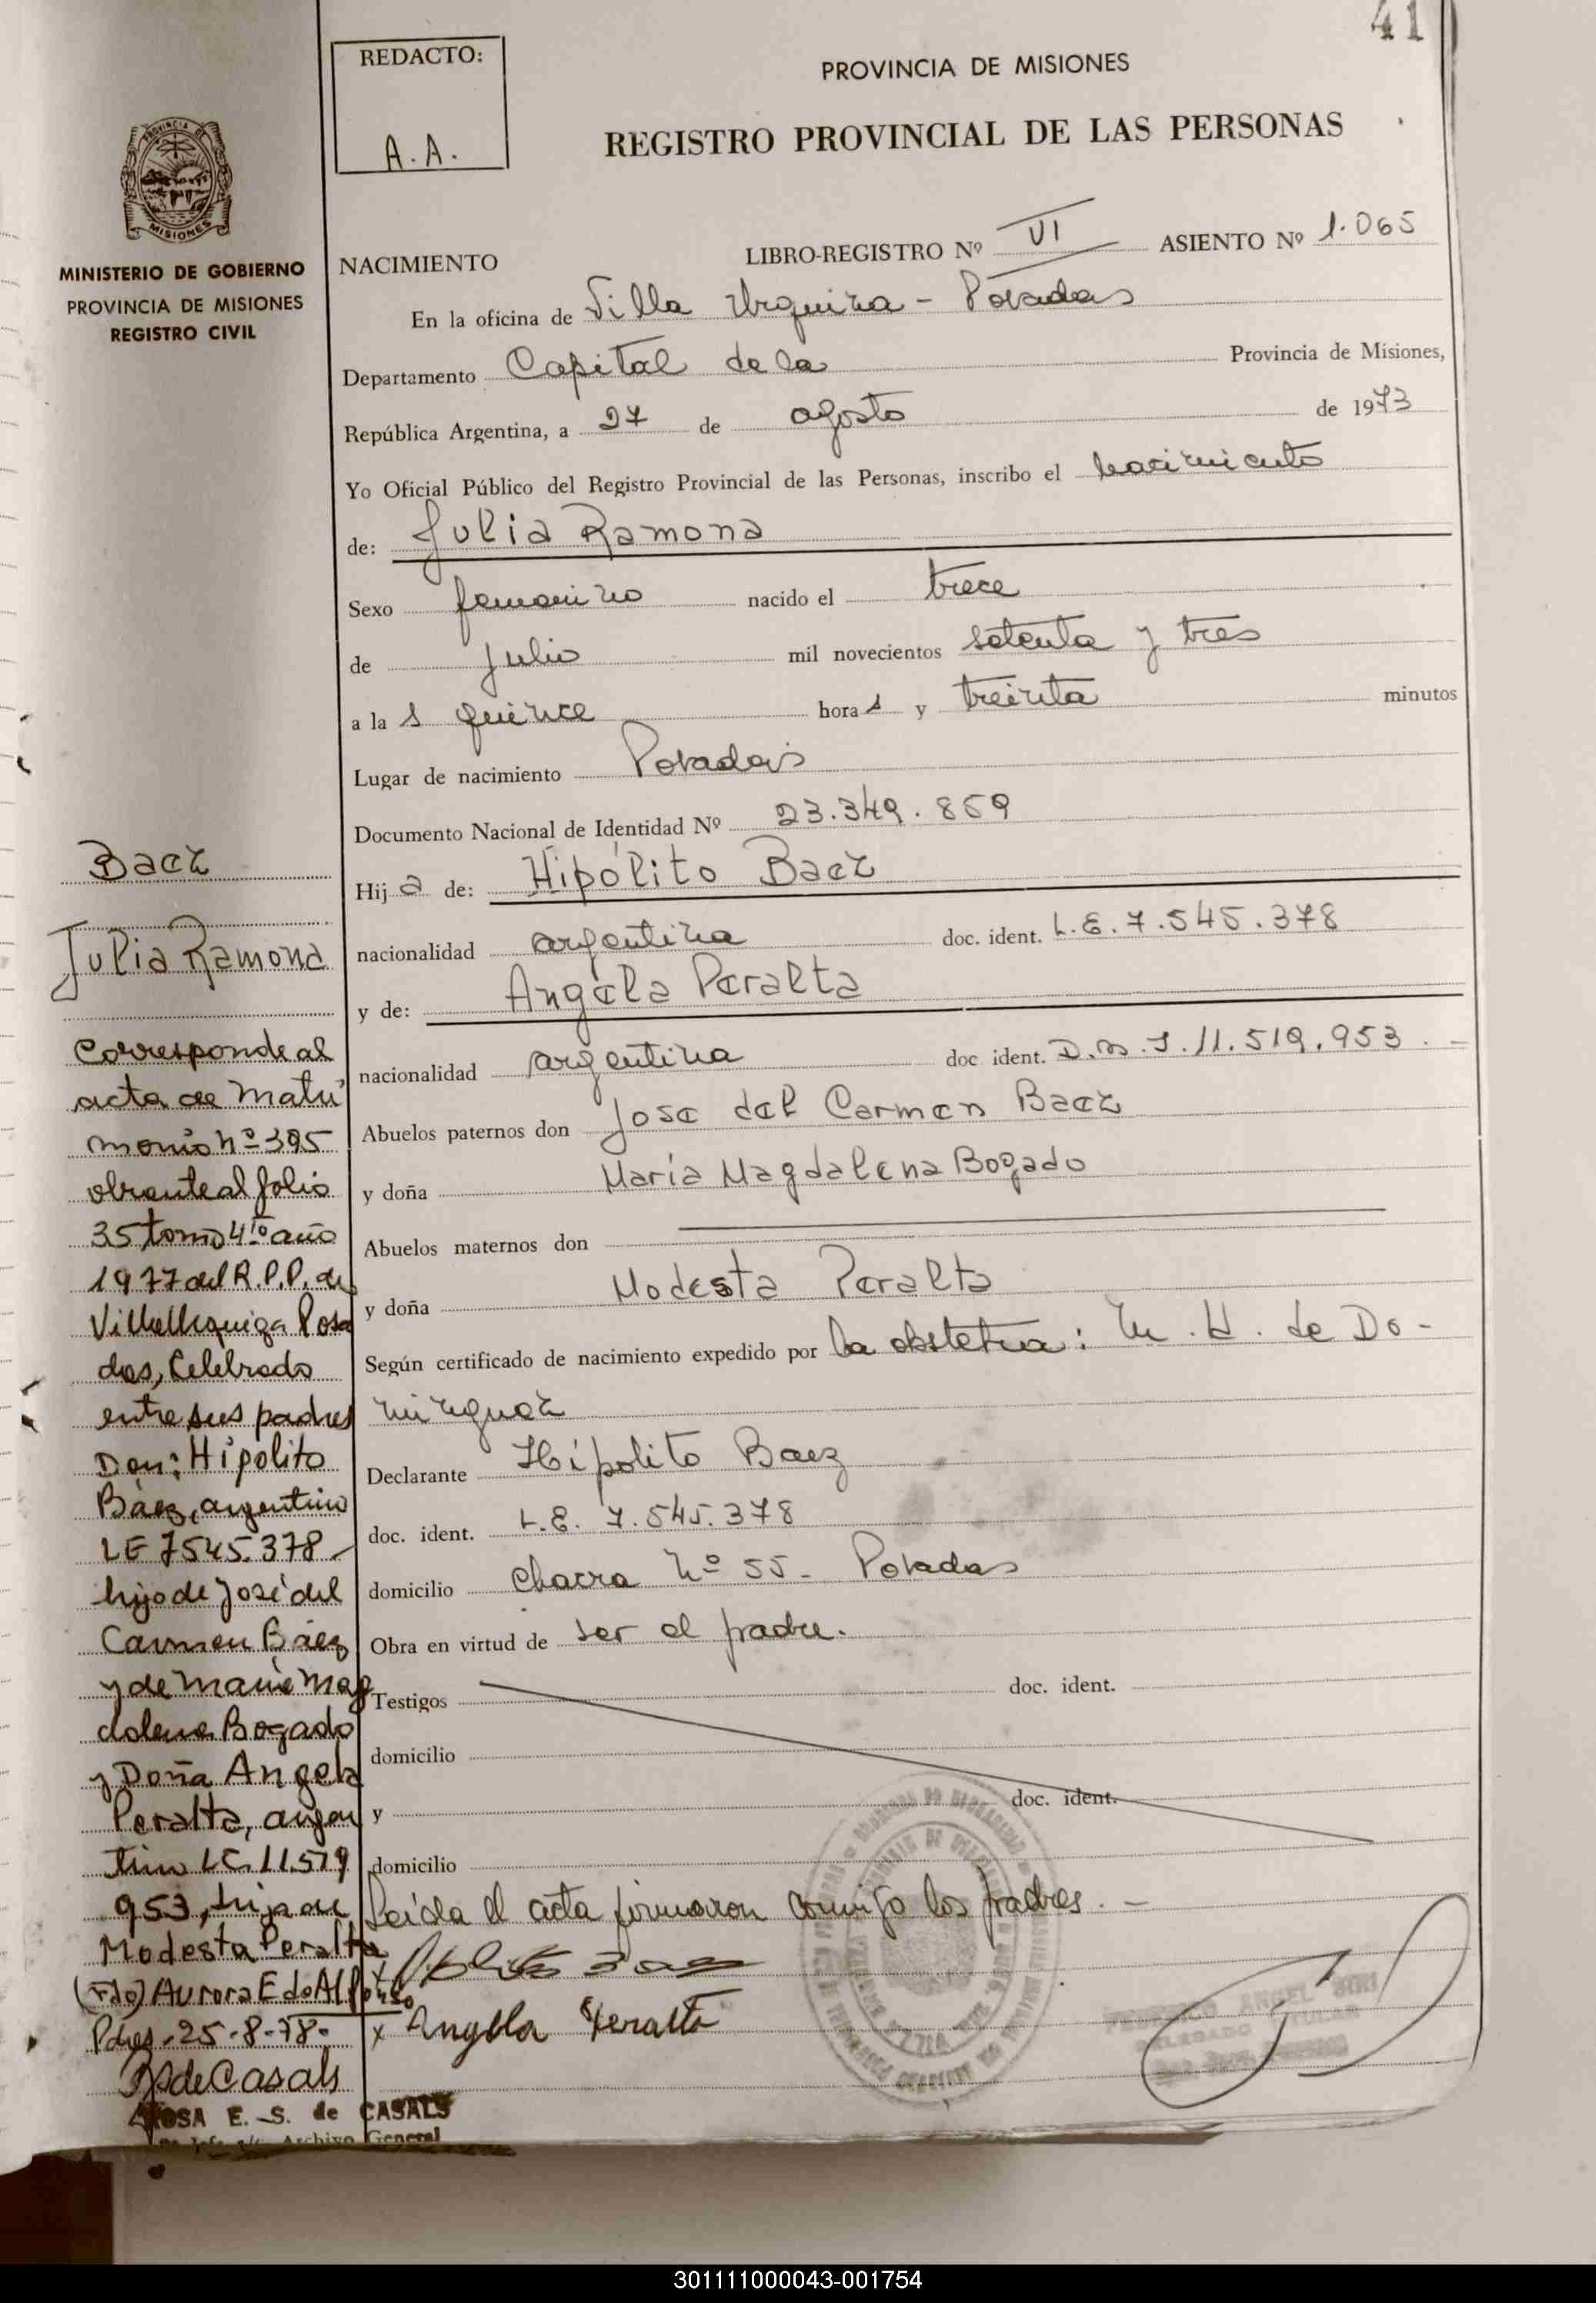 41
REDACTO:
A.A.
PROVINCIA DE MISIONES
REGISTRO PROVINCIAL DE LAS PERSONAS
PROVINCIA DE
MISIONES
MINISTERIO DE GOBIERNO
PROVINCIA DE MISIONES
REGISTRO CIVIL
NACIMIENTO LIBRO-REGISTRO Nº VI ASIENTO Nº 1.065
En la oficina de Villa Urquiza - Posadas
Departamento Capital de la Provincia de Misiones,
República Argentina, a 27 de agosto de 1973
Yo Oficial Público del Registro Provincial de las Personas, inscribo el nacimiento
de: Julia Ramona
Sexo femenino nacido el trece
de julio mil novecientos setenta y tres
a la s quince hora s y treinta minutos
Lugar de nacimiento Posadas
Documento Nacional de Identidad Nº 23.349.859
Hij a de: Hipólito Baez
nacionalidad argentina doc. ident. L.E. 7.545.378
y de: Angela Peralta
nacionalidad argentina doc ident. 11.519.953.-
Abuelos paternos don Jose del Carmen Baez
y doña María Magdalena Bogado
Abuelos maternos don
y doña Modesta Peralta
Según certificado de nacimiento expedido por la obstetra: M. H. de Do-
minguez
Declarante Hipolito Baez
doc. ident. L.E. 7.545.378
domicilio Chacra Nº 55- Posadas
Obra en virtud de ser el padre.
Testigos doc. ident.
domicilio
y doc. ident.
domicilio
Leida el acta firmaron conmigo los padres.-
x Angela Peralta
Baez
Julia Ramona
Corresponde al
acta de Matri
monio nº 395
obrante al folio
35 tomo 4to año
1977 del R.P.P. de
Villa Urquiza Posa
das, Celebrado
entre sus padres
Don: Hipólito
Báez, argentino
LE 7545.378-
hijo de José del
Carmen Báez
y de María Mag
dalena Bogado
y Doña Angela
Peralta, argen
tina LC. 11.519
953, hija de
Modesta Peralta
(Fdo) Aurora E de Alfonso
Pdas, 25-8-78-
de Casals
ROSA E. S. de CASALS
Archivo General
ANGEL
DELEGADO TITULAR
301111000043-001754